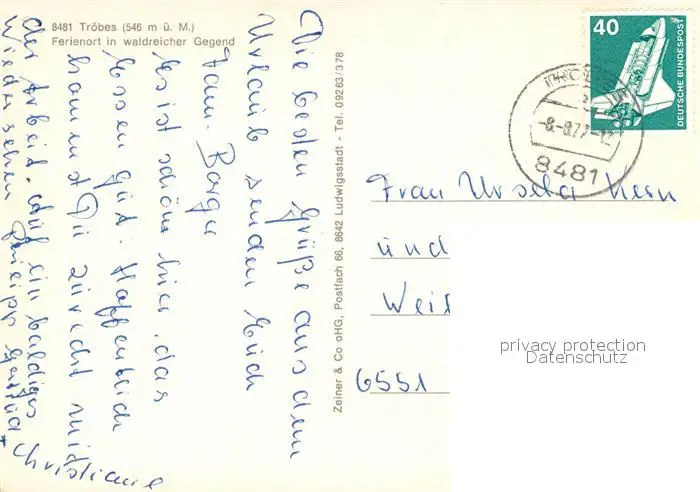 8481 Tröbes (546 m ü. M.)
Ferienort in waldreicher Gegend
Die besten Grüße aus dem
Urlaub senden Euch
Fam. Borger
Es ist schön hier, das
Essen gut. Hoffentlich
kommst Du zurecht mit
der Arbeit. Auf ein baldiges
Wiedersehen
+ Christiane
Zeiner & Co oHG, Postfach 66, 8642 Ludwigsstadt - Tel. 09263/378
40
DEUTSCHE BUNDESPOST
-8.-8.77-12
8481
Frau Ursula Kern
und
Weis
6551
privacy protection
Datenschutz